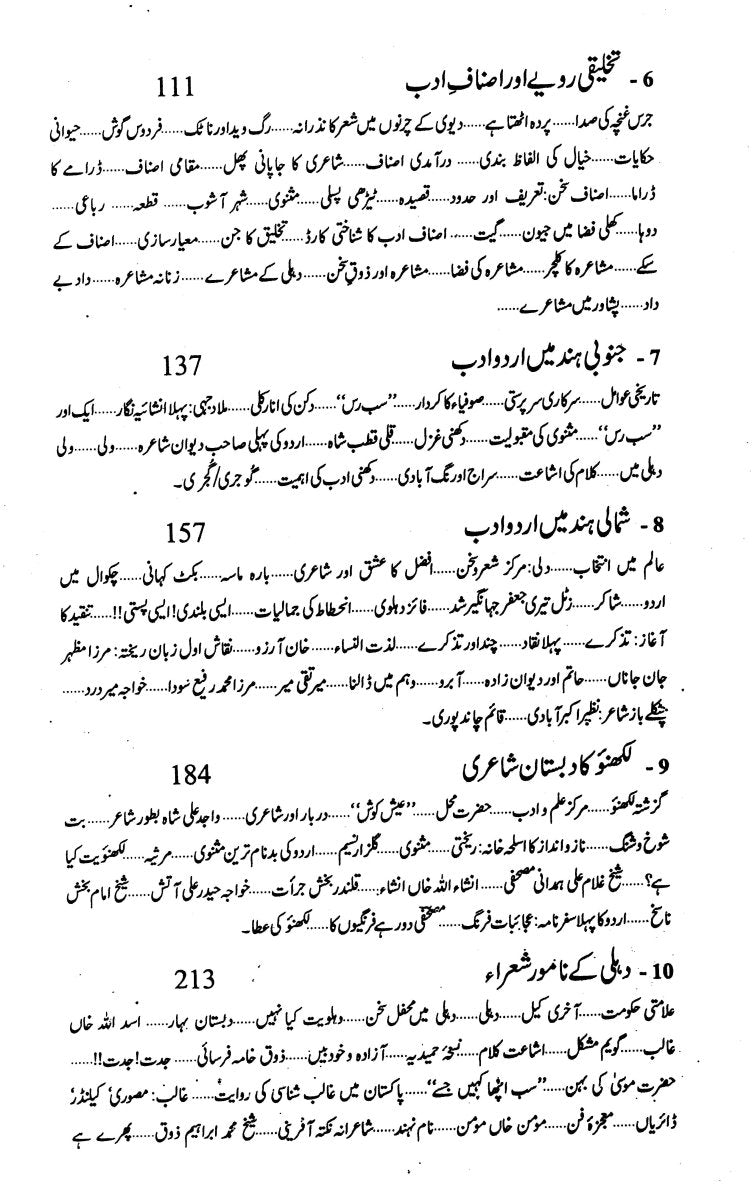 6 - تخلیقی رویے اور اصنافِ ادب 111
جرس غنچہ کی صدا......پردہ اٹھتا ہے......دیوی کے چرنوں میں شعر کا نذرانہ......رگ وید اور ناٹک......فردوس گوش......حیوانی
حکایات......خیال کی الفاظ بندی...... درآمدی اصناف......شاعری کا جاپانی پھل......مقامی اصناف......ڈرامے کا
ڈراما......اصناف سخن: تعریف اور حدود......قصیدہ......ٹیڑھی پسلی......مثنوی......شہر آشوب...... قطعہ...... رباعی......
دوہا......کھلی فضا میں جیون......گیت...... اصناف ادب کا شناختی کارڈ......تخلیق کا جن......معیار سازی......اصناف کے
سکے......مشاعرہ کا کلچر......مشاعرہ کی فضا......مشاعرہ اور ذوقِ سخن......دہلی کے مشاعرے......زنانہ مشاعرہ......داد بے
داد......پشاور میں مشاعرے......
7 - جنوبی ہند میں اردو ادب 137
تاریخی عوامل......سرکاری سرپرستی......صوفیاء کا کردار......''سب رس''......دکن کی انارکلی......ملا وجہی: پہلا انشائیہ نگار......ایک اور
''سب رس''......مثنوی کی مقبولیت......دکھنی غزل......قلی قطب شاہ......اردو کی پہلی صاحب دیوان شاعرہ......ولی......ولی
دہلی میں......کلام کی اشاعت......سراج اورنگ آبادی......دکھنی ادب کی اہمیت......گوجری/گُجری۔
8 - شمالی ہند میں اردو ادب 157
عالم میں انتخاب......دلی: مرکز شعر و سخن......افضل کا عشق اور شاعری......بارہ ماسہ......بکٹ کہانی......چکوال میں
اردو......شاکر......زٹل تیری جعفر جہانگیر شد......فائز دہلوی......انحطاط کی جمالیات......ایسی بلندی! ایسی پستی!!......تنقید کا
آغاز: تذکرے......پہلا نقاد......چند اور تذکرے......لذت النساء......خان آرزو......نقاش اول زبان ریختہ: مرزا مظہر
جان جاناں......حاتم اور دیوان زادہ......آبرو......وہم میں ڈالنا......میر تقی میر......مرزا محمد رفیع سودا......خواجہ میر درد......
چٹکلے باز شاعر: نظیر اکبر آبادی......قائم چاند پوری۔
9 - لکھنؤ کا دبستان شاعری 184
گزشتہ لکھنؤ......مرکز علم و ادب......حضرت محل......''عیش کوش''......دربار اور شاعری......واجد علی شاہ بطور شاعر......بت
شوخ و شنگ......ناز و انداز کا اسلحہ خانہ: ریختی......مثنوی......گلزار نسیم......اردو کی بدنام ترین مثنوی......مرثیہ......لکھنؤیت کیا
ہے؟......شیخ غلام علی ہمدانی مصحفی......انشاء اللہ خاں انشاء:......قلندر بخش جرأت......خواجہ حیدر علی آتش......شیخ امام بخش
ناسخ......اردو کا پہلا سفر نامہ: عجائبات فرنگ......مصحفی دور ہے فرنگیوں کا......لکھنؤ کی عطا۔
10 - دہلی کے نامور شعراء 213
علامتی حکومت......آخری کیل......دہلی......دہلی میں محفل سخن......دہلویت کیا نہیں......دبستان بہار......اسد اللہ خاں
غالب......گویم مشکل......اشاعت کلام......نسخۂ حمیدیہ......آزادہ و خود بیں......ذوق خامہ فرسائی......جدت! جدت!!......
حضرت موسیٰ کی بہن......''سب اچھا کہیں جسے''......پاکستان میں غالب شناسی کی روایت......غالب: مصوری، کیلنڈر،
ڈائریاں......معجزۂ فن......مومن خاں مومن......نام نہند......شاعرانہ نکتہ آفرینی......شیخ محمد ابراہیم ذوق......پھرے ہے